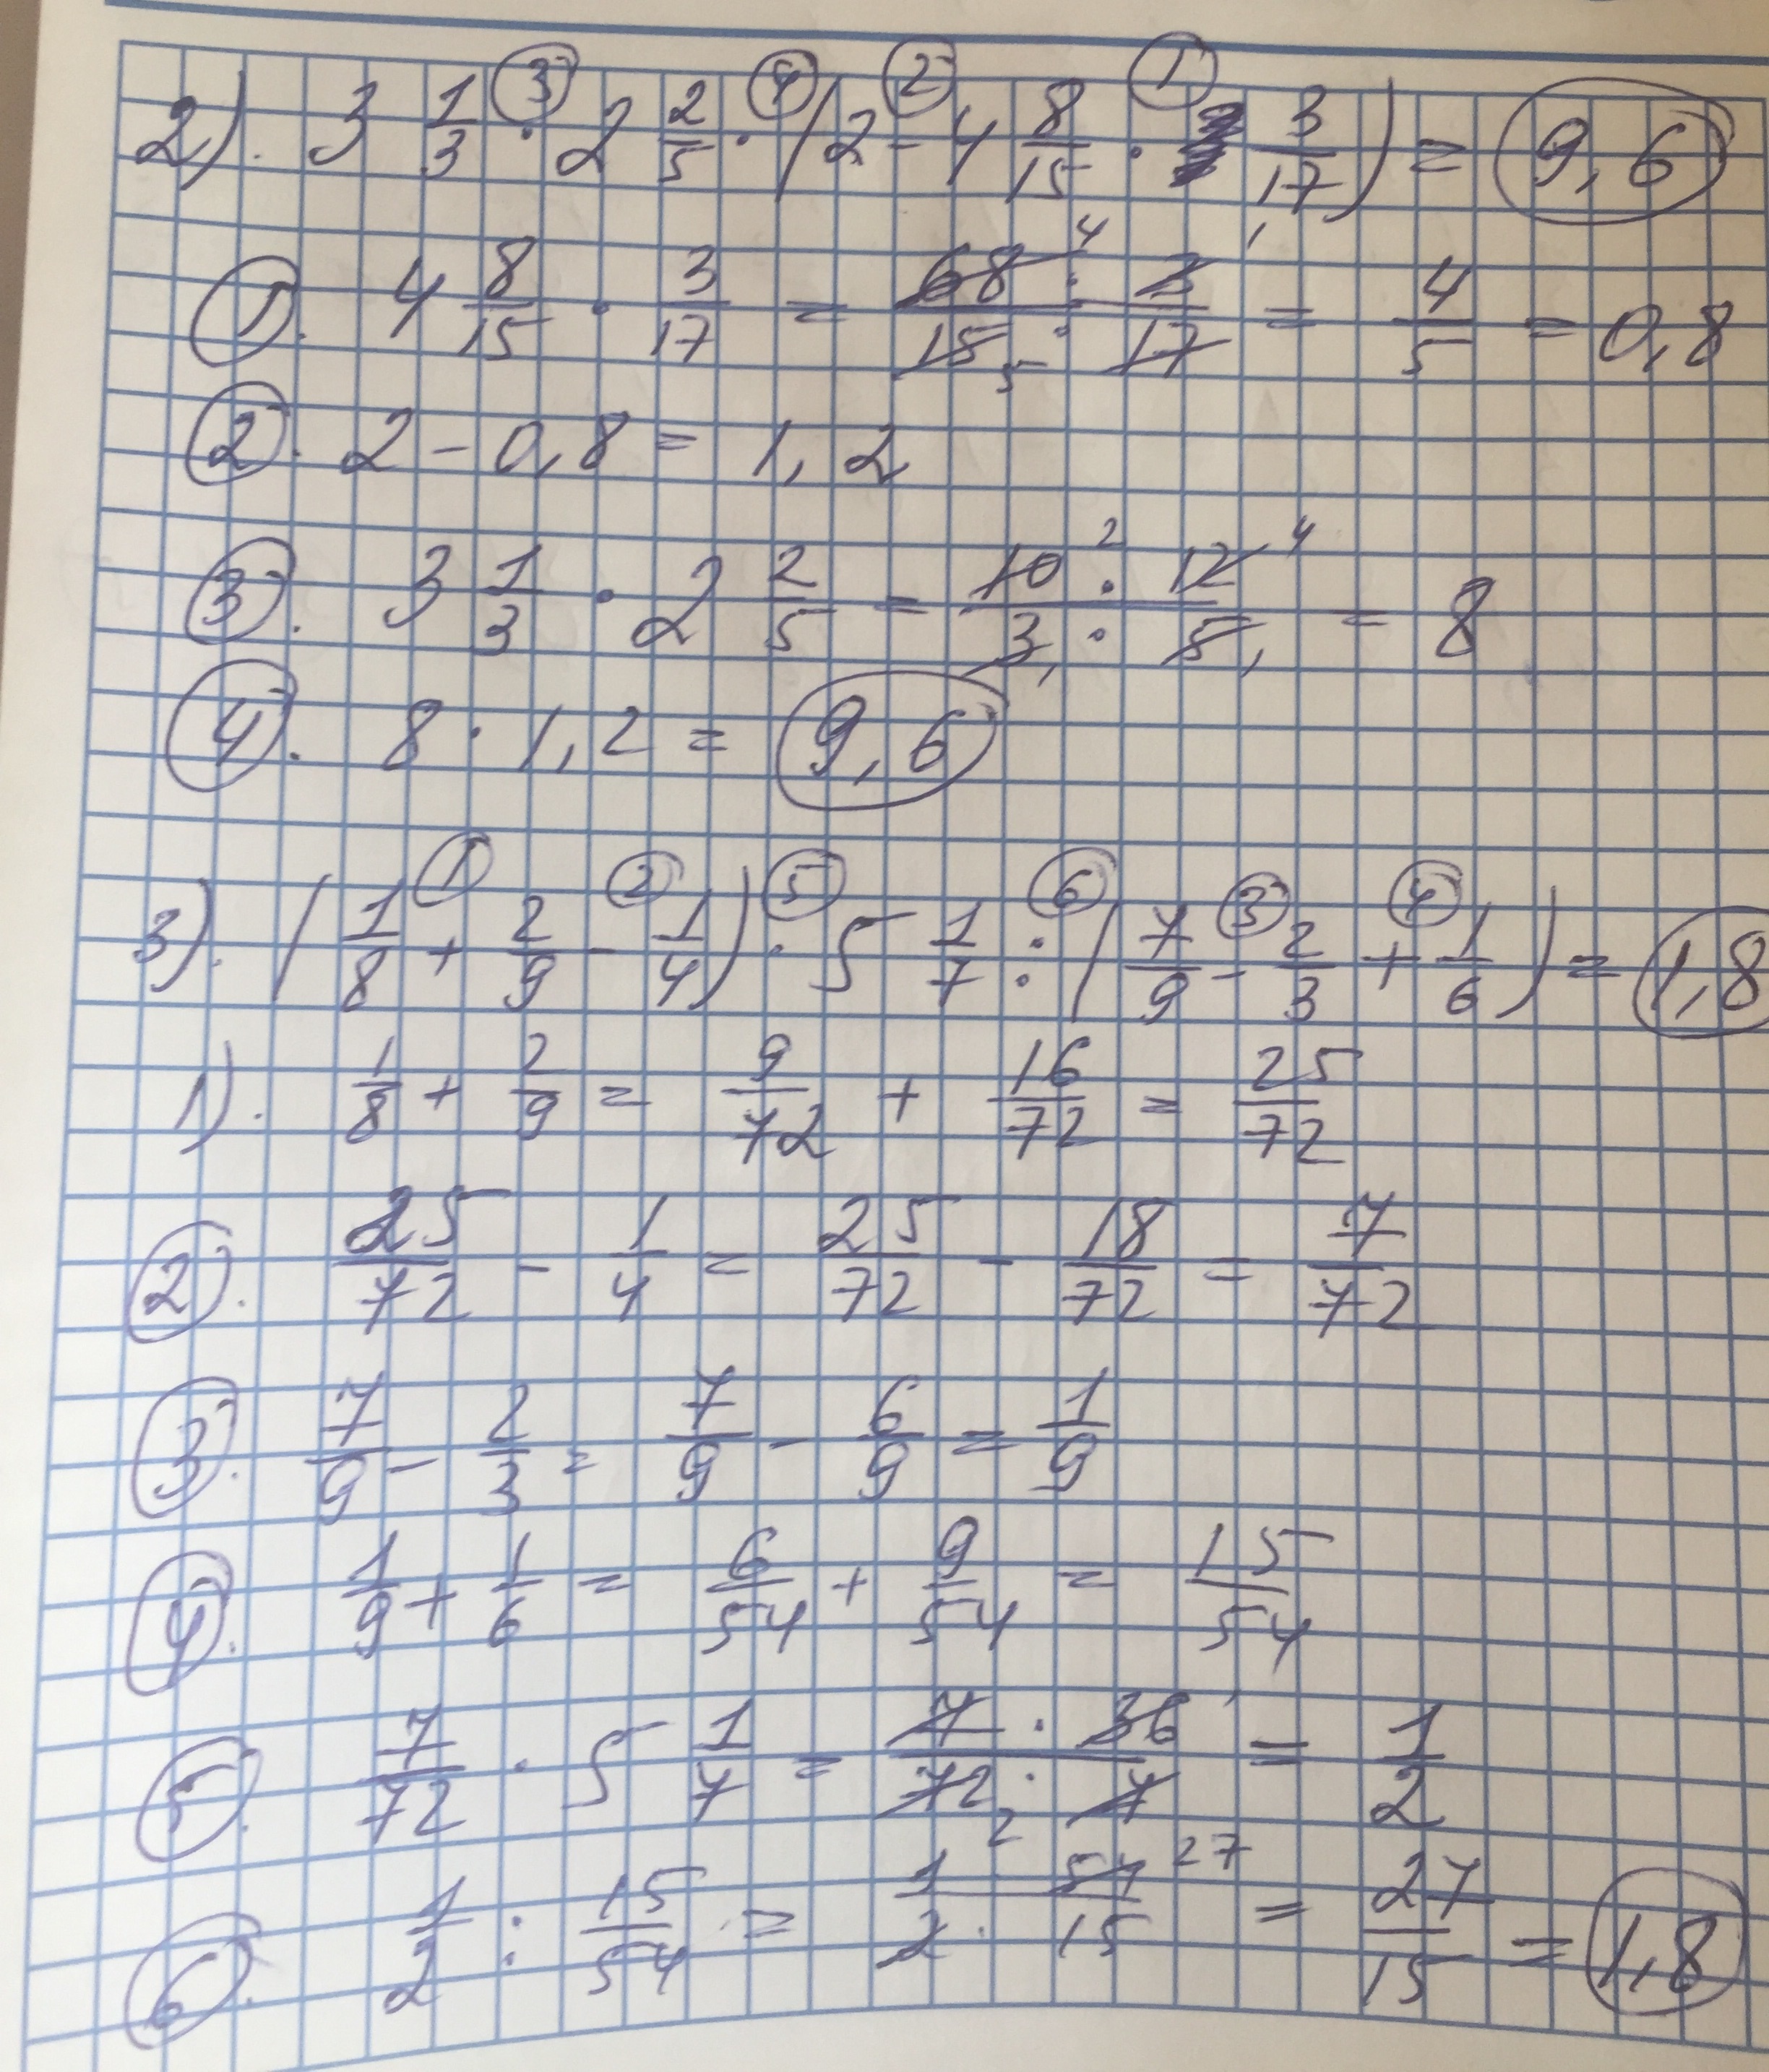 2). 3 1/3 · 2 2/5 · (2 - 4 8/15 · 3/17) = 9,6
① ② ③ ④
①. 4 8/15 · 3/17 = 68 · 3 / 15 · 17 = 4/5 = 0,8
②. 2 - 0,8 = 1,2
③. 3 1/3 · 2 2/5 = 10 · 12 / 3 · 5 = 8
④. 8 · 1,2 = 9,6
3). (1/8 + 2/9 - 1/4) · 5 1/7 : (7/9 - 2/3 + 1/6) = 1,8
① ② ⑤ ⑥ ③ ④
1). 1/8 + 2/9 = 9/72 + 16/72 = 25/72
②. 25/72 - 1/4 = 25/72 - 18/72 = 7/72
③. 7/9 - 2/3 = 7/9 - 6/9 = 1/9
④. 1/9 + 1/6 = 6/54 + 9/54 = 15/54
⑤. 7/72 · 5 1/7 = 7 · 36 / 72 · 7 = 1/2
⑥. 1/2 : 15/54 = 1 · 54 / 2 · 15 = 27/15 = 1,8